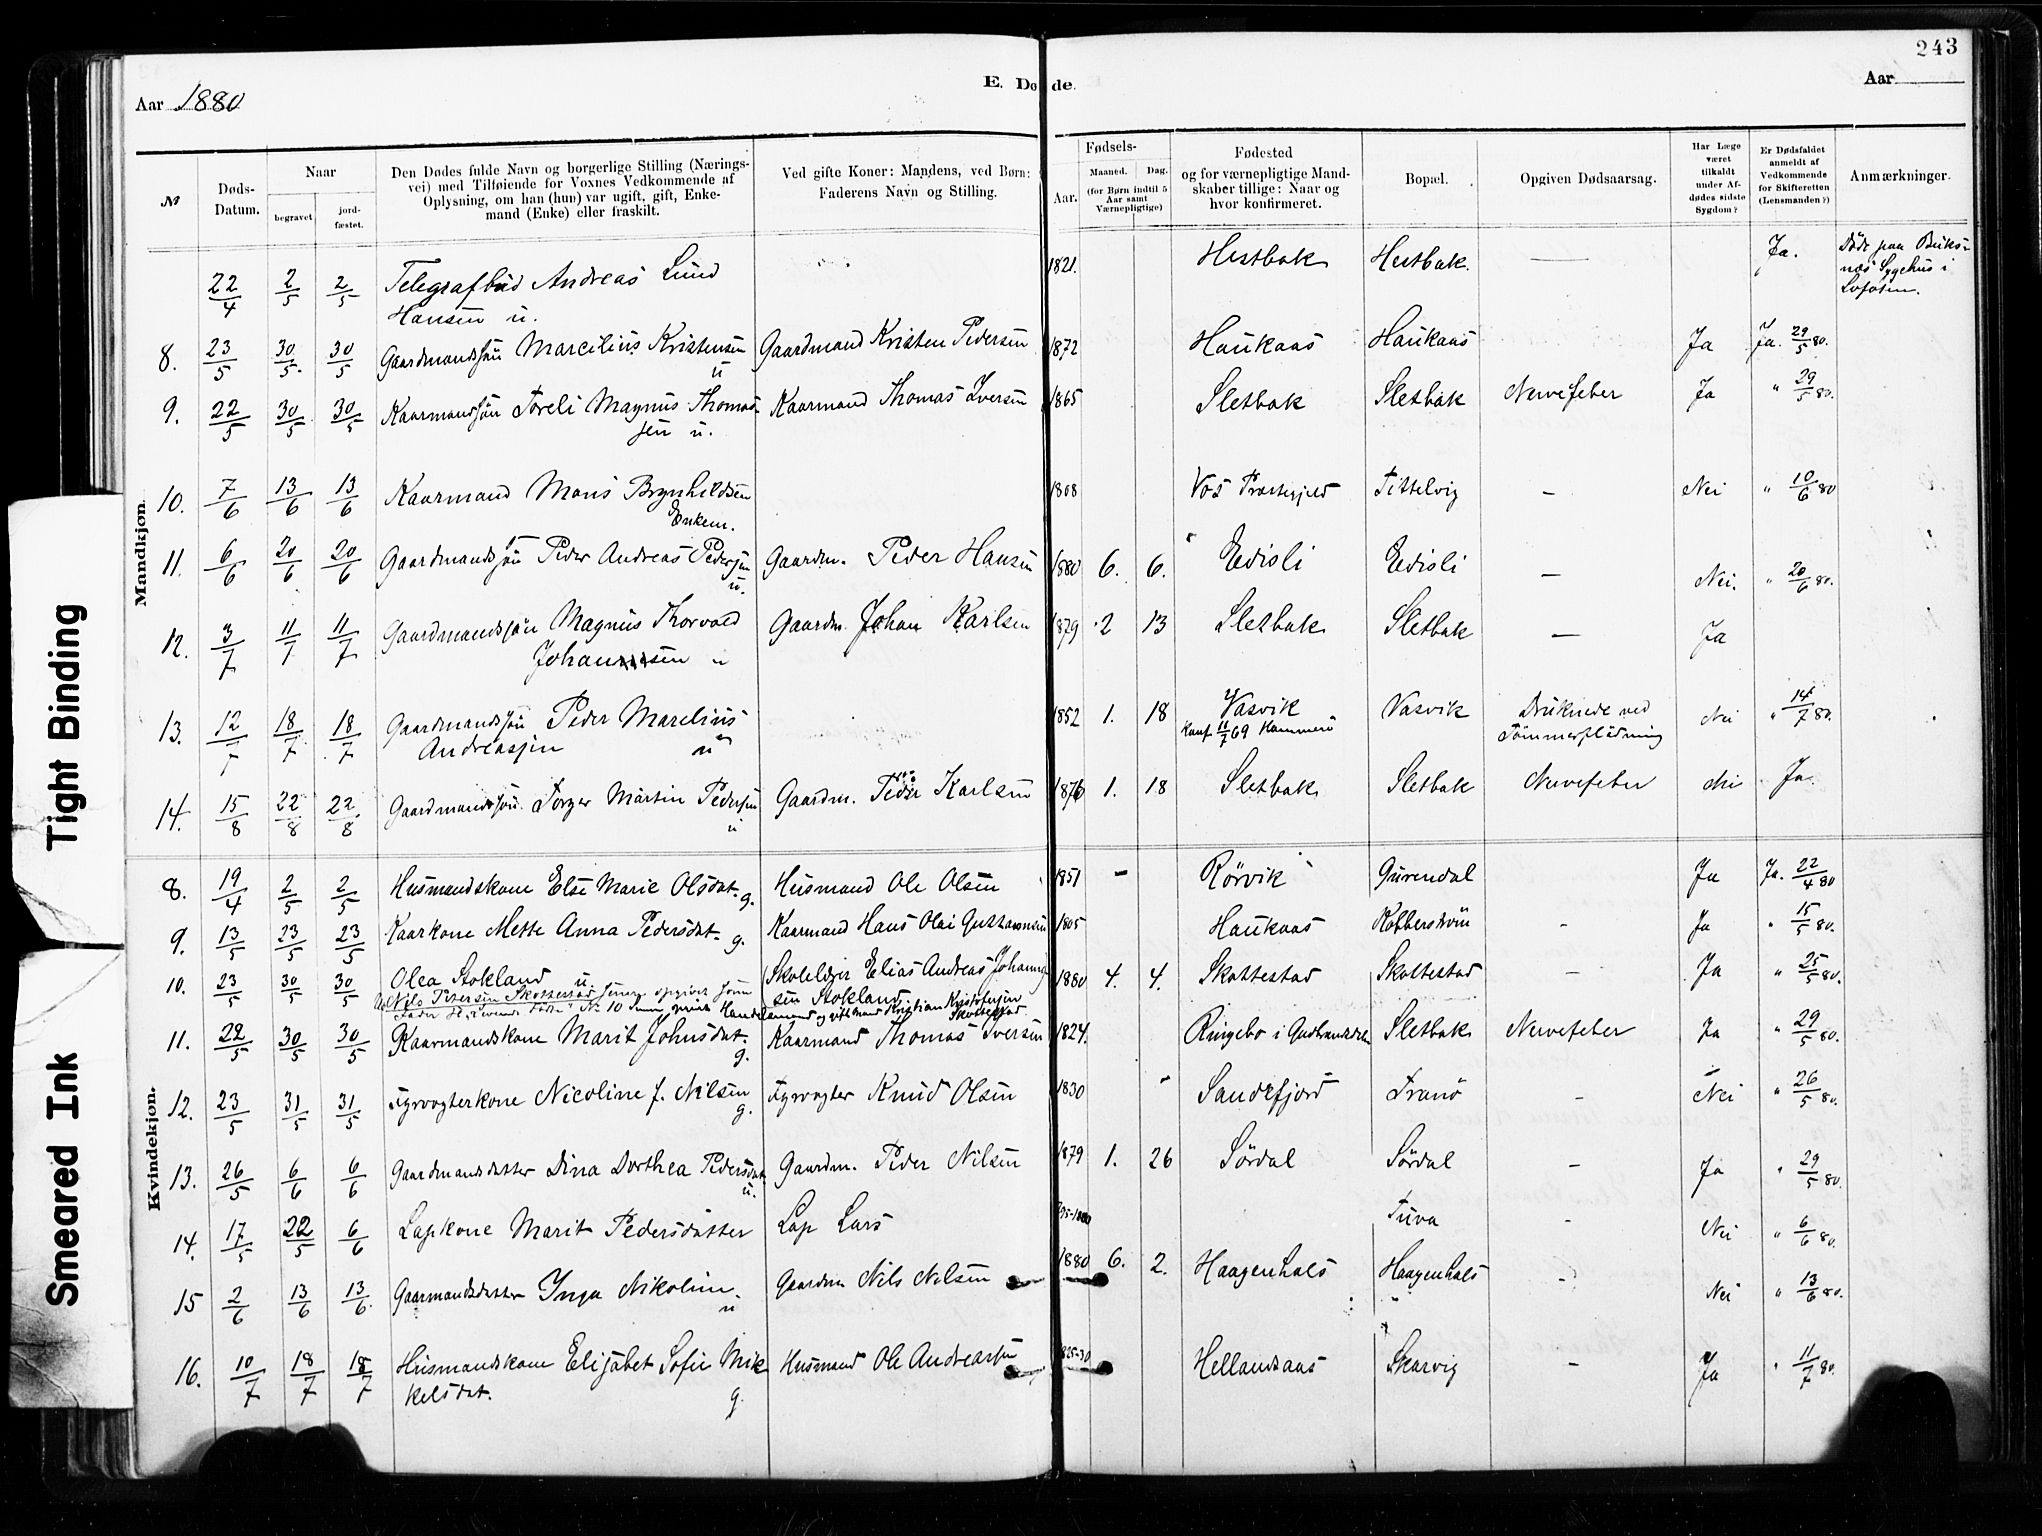 243
E. Døde.
Aar 1880
Aar
№
Døds-Datum.
Naar
begravet.
jord-fæstet.
Den Dødes fulde Navn og borgerlige Stilling (Nærings-
vei) med Tilføiende for Voxnes Vedkommende af
Oplysning, om han (hun) var ugift, gift, Enke-
mand (Enke) eller fraskilt.
Ved gifte Koner: Mandens, ved Børn:
Faderens Navn og Stilling.
Fødsels-
Aar.
Maaned.
Dag.
(for Børn indtil 5
Aar samt
Værnepligtige)
Fødested
og for værnepligtige Mand-
skaber tillige: Naar og
hvor konfirmeret.
Bopæl.
Opgiven Dødsaarsag.
Har Læge
været
tilkaldt
under Af-
dødes sidste
Sygdom?
Er Dødsfaldet
anmeldt af
Vedkommende
for Skifteretten
(Lensmanden?)
Anmærkninger.
Mandkjøn.
22/4 2/5 2/5 Telegrafbud Andreas Lund 1821. Hestbak Hestbak. — Ja. Døde paa Buks-
Hansen u. næs Sygehus i
Lofoten.
8. 23/5 30/5. 30/5 Gaardmandssøn Marcilius Kristensen Gaardmand Kristen Pedersen 1872 Haukaas Haukaas Ja Ja. 29/5 80.
u
9. 22/5 30/5 30/5 Kaarmandssøn Toreli Magnus Thomas- Kaarmand Thomas Iversen 1865 Sletbak Sletbak Nervefeber Ja " 29/5 80.
sen u.
10. 7/6 13/6 13/6 Kaarmand Mons Brynhildsen 1808 Vos Præstegjeld Tittelvig — Nei " 10/6 80
Enkem.
11. 6/6 20/6 20/6 Gaardmandssøn Peder Andreas Pedersen Gaardm. Peder Hansen 1880 6. 6. Edisli Edisli — Nei. " 20/6 80.
u.
12. 3/7 11/7 11/7 Gaardmandssøn Magnus Thorvald Gaardm. Johan Karlsen 1879 2 13 Sletbak Sletbak — Ja
Johansen u
13. 12/7 18/7 18/7 Gaardmandssøn Peder Marelius 1852 1. 18 Vasvik Vasvik Druknede ved Nei " 14/7 80.
Andreassen u Konf. 11/7 69 Hammerø Tømmerflådning
14. 15/8 22/8 22/8 Gaardmandssøn Torger Martin Pedersen Gaardm. Peder Karlsen 1876 1. 18 Sletbak Sletbak Nervefeber Nei Ja.
u
Kvindekjøn.
8. 19/4 2/5 2/5 Husmandskone Else Marie Olsdat. g. Husmand Ole Olsen 1851 — Rørvik Gurendal Ja Ja. 22/4 80
9. 13/5 23/5 23/5 Kaarkone Mette Anna Pedersdat. g. Kaarmand Hans Olai Guttormsen 1805 Haukaas Kobberstrøm - Ja " 15/5 80.
10. 23/5 30/5 30/5 Olea Stokland u. Skolelærer Elias Andreas Johannes- 1880 4. 4. Skottestad Skottestad — Ja " 25/5 80.
sen Stokland
Nils Petersen Skottestad, senere opgivet som
Fader
11. 22/5 30/5 30/5 Kaarmandskone Marit Johnsdat. g. Kaarmand Thomas Iversen 1824. Ringebo i Gudbrandsdalen Sletbak Nervefeber Ja " 29/5 80.
12. 23/5 31/5 31/5 Fyrvogterkone Nicoline f. Nilsen g. Fyrvogter Knud Olsen 1830 Sandefjord Tranø - Nei " 26/5 80.
13. 26/5 6/6 6/6 Gaardmandsdatter Dina Dorthea Pedersdat. u. Gaardm. Peder Nilsen 1879 1. 26 Sørdal Sørdal — Ja " 29/5 80.
14. 17/5 22/5 6/6 Lapkone Marit Pedersdatter Lap Lars Tuva - Nei " 6/6 80.
15 2/6 13/6 13/6. Gaarmandsdatter Inga Nikoline. u Gaardm Nils Nilsen 1880 6. 2. Haagenhals Haagenhals - Nei " 13/6 80.
16. 10/7 18/7 18/7 Husmandskone Elisabet Sofie Mik- Husmand Ole Andreassen 1825-30 Hellandsaas Skarvig - Ja " 11/7 80.
kelsdat. g.
Tight Binding
Smeared Ink